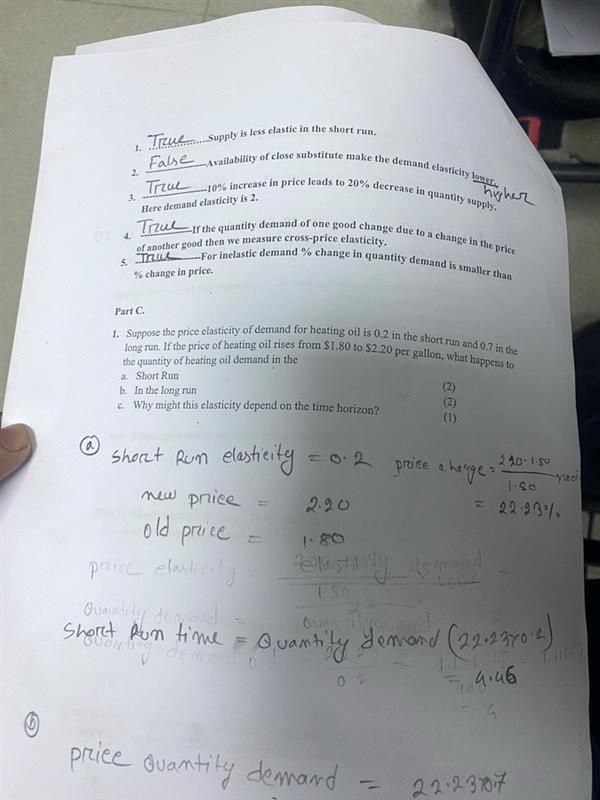 1. True Supply is less elastic in the short run.
2. False Availability of close substitute make the demand elasticity lower.
higher
3. True 10% increase in price leads to 20% decrease in quantity supply.
Here demand elasticity is 2.
4. True If the quantity demand of one good change due to a change in the price
of another good then we measure cross-price elasticity.
5. True For inelastic demand % change in quantity demand is smaller than
% change in price.
Part C.
1. Suppose the price elasticity of demand for heating oil is 0.2 in the short run and 0.7 in the
long run. If the price of heating oil rises from $1.80 to $2.20 per gallon, what happens to
the quantity of heating oil demand in the
a. Short Run (2)
b. In the long run (2)
c. Why might this elasticity depend on the time horizon? (1)
(a) Short Run elasticity = 0.2 price change = 2.20-1.80
1.80
new price = 2.20 = 22.23%
old price = 1.80
price elasticity demand
1.80
Quantity demand =
Short Run time = Quantity demand (22.23×0.2)
0.2 = 4.46
(b)
price Quantity demand = 22.23×0.7